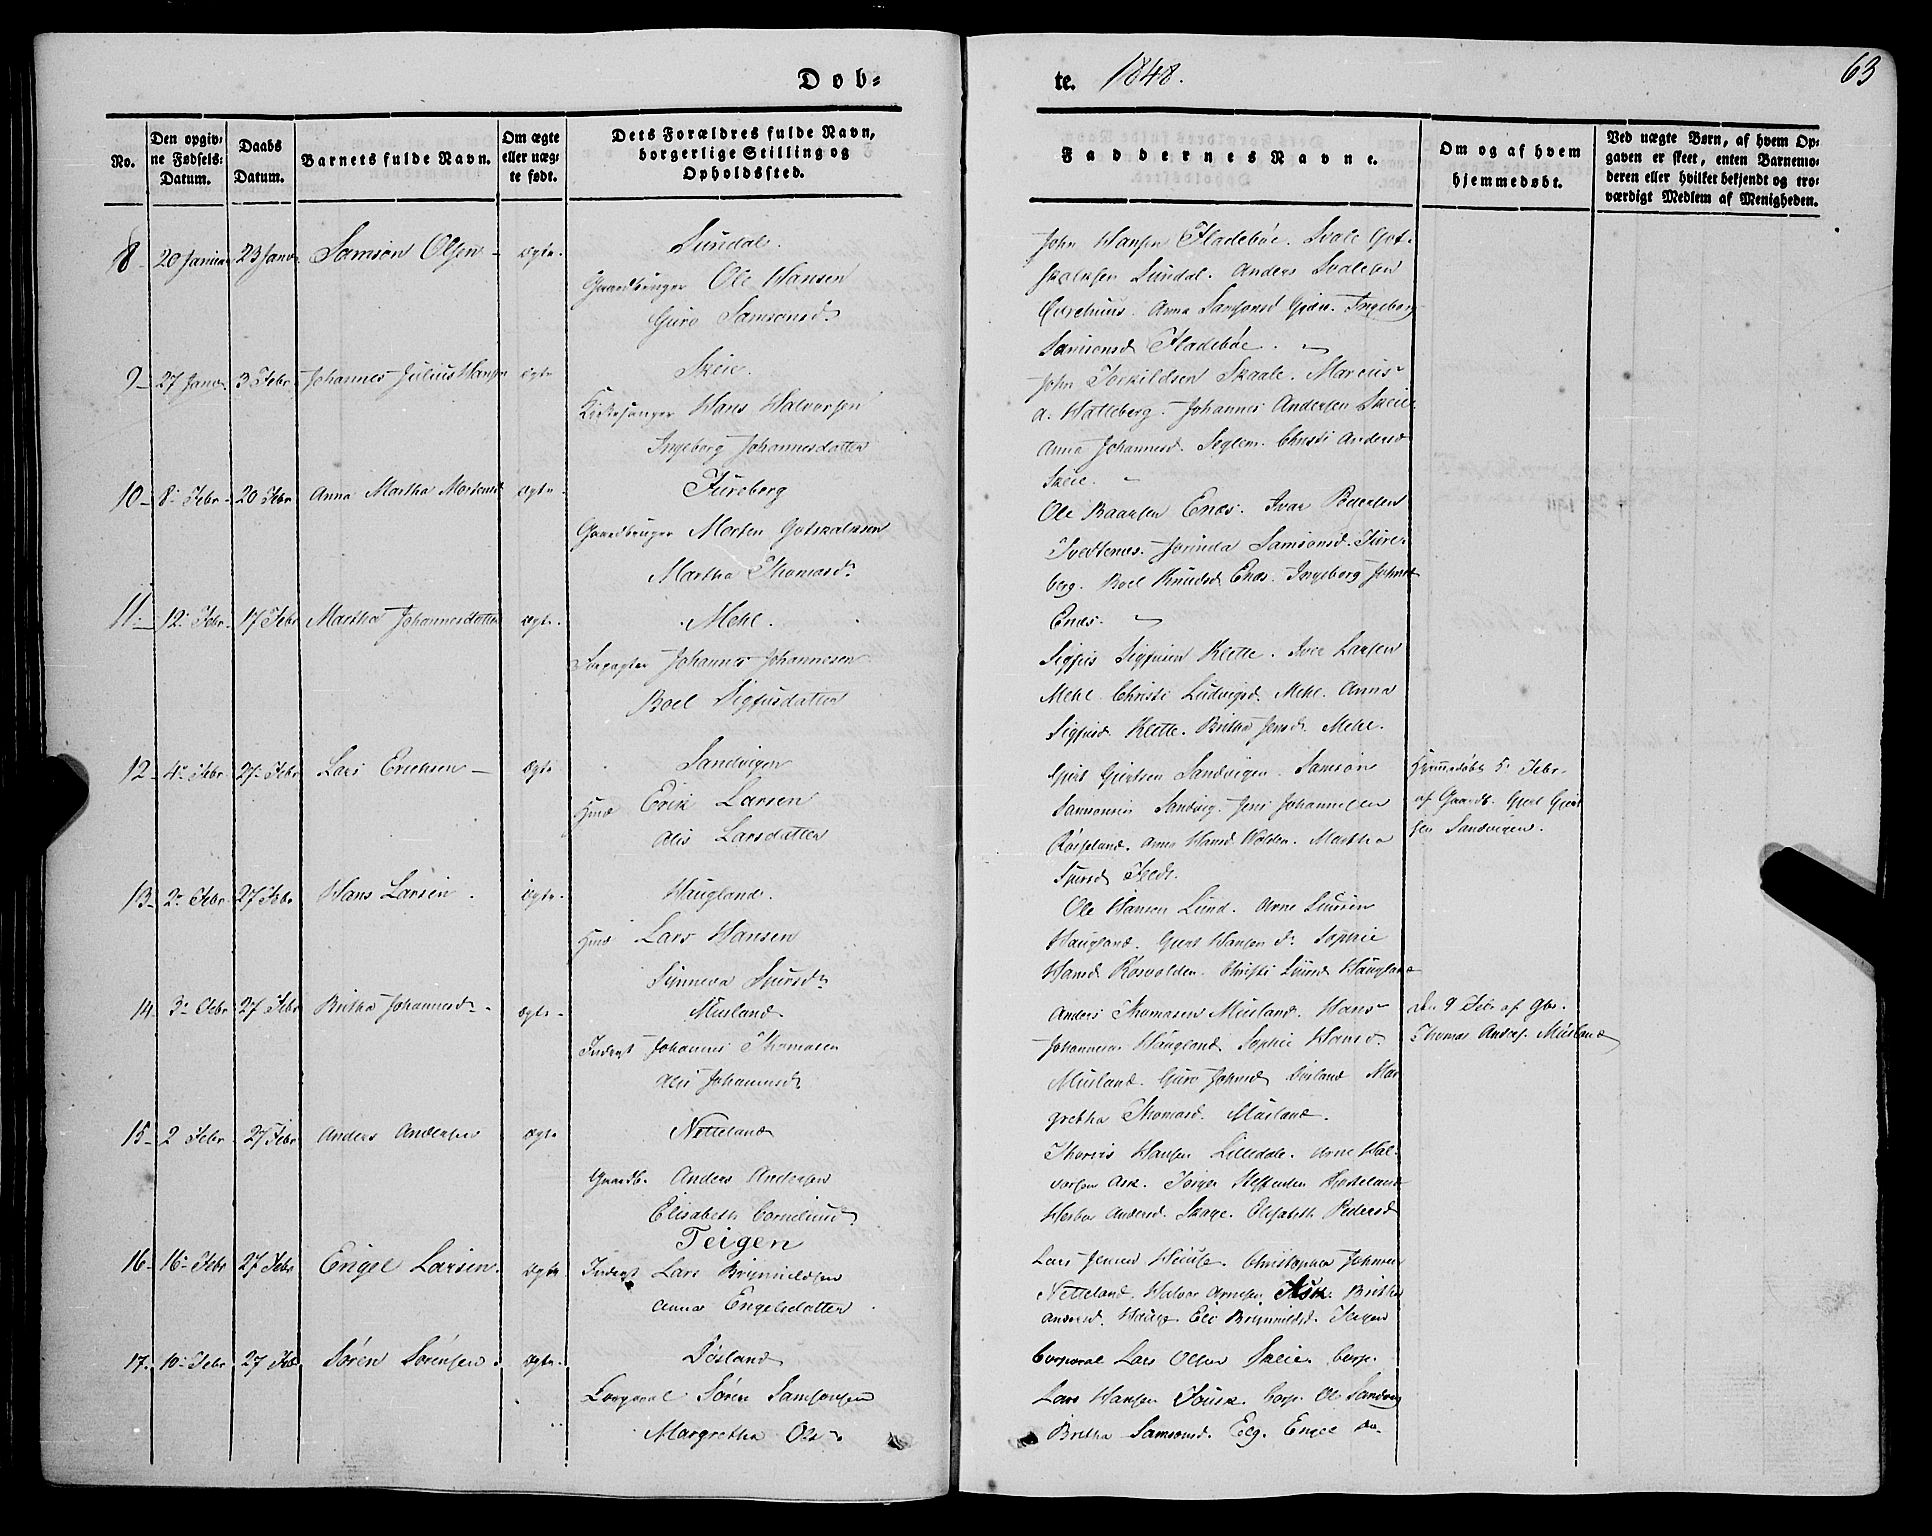 Dob-
te. 1848.
63
No.
Den opgiv-
ne Fødsels-
Datum.
Daabs
Datum.
Barnets fulde Navn.
Om ægte
eller uæg-
te født.
Dets Forældres fulde Navn,
borgerlige Stilling og
Opholdssted.
Faddernes Navne.
Om og af hvem
hjemmedøbt.
Ved uægte Børn, af hvem Op-
gaven er skeet, enten Barnemo-
deren eller hvilket bekjendt og tro-
værdigt Medlem af Menigheden.
8 20 Januar 23 Janr. Samson Olsen ægte.
Sundal.
Gaardbruger Ole Hansen
Guro Samsonsd.
John Hansen Fladebøe. Svale Got-
skalksen Sundal. Anders Svalesen
Anna Samsonsd Ingeborg
Samsonsd Fladebøe.
9 27 Janr. 3 Febr. Johannes Julius Hansen ægte
Skeie.
Kirkesanger Hans Halvorsen
Ingeborg Johannesdatter
John Torkildsen Skaale. Marcus
a. Hatteberg. Johannes Andersen Skeie
Anna Johannesd. Seglem. Christi Andersd
Skeie.
10 8 Febr. 20 Febr. Anna Martha Mortensd ægte.
Fureberg
Gaardbruger Morten Gotskalksen
Martha Thomasd.
Ole Baarsen Enæs. Ivar Pedersen
Tvedtenæs. Jorinda Samsonsd. Fure-
berg. Boel Knudsd Enæs. Ingeborg Johnsd
Enæs.
11. 12 Febr. 17 Febr Martha Johannesdatter ægte.
Mehl.
Johannes Johannesen
Boel Sigfusdatter
Sigfus Sigfusen Klette. Iver Larsen
Mehl. Christi Ludvigsd. Mehl. Anna
Sigfusd. Klette. Britha Jensd. Mehl.
12 4 Febr. 27 Febr Lars Ericksen ægte
Sandvigen
Huus Erik Larsen
Alis Larsdatter
Giert Giertsen Sandvigen. Samson
Samsonsen Sandvig. Jens Johannesen
Røseland. Anna Hansd. Holden. Martha
Hjemmedøbt 5 Febr.
af Gaardb. Giert Giert
sen Sandvigen.
13 2 Febr 27 Febr Hans Larsen. ægte.
Haugland.
Huus Lars Hansen
Synneva Sjursd.
Ole Hansen Lund. Arne
Haugland. Giert Hansen do. Sophie
Hansd. Christi Haugland
14 3 Febr 27 Febr Britha Johannesd. ægte
Musland
Inderst Johannes Thomasen
Alis Johannesd
Anders Thomasen Musland. Hans
Johannesen Haugland Sophie Hansd.
Musland. Guro Johnsd Mar
gretha Thomasd. Musland.
den 9 Febr af Gbr.
Thomas Anders. Musland
15 2 Febr 27 Febr Anders Andersen ægte
Netteland
Gaardb. Anders Andersen
Elisabeth Corneliusd
Hansen Lilledale. Arne Hal-
vorsen Ask.
Andersd. Skage. Elisabeth Pedersd
16 16 Febr 27 Febr Engel Larsen. ægte
Teigen
Inderst Lars Brynnildsen
Anna Engelsdatter
Lars Jensen Hauge. Christopher Johnsen
Netteland. Halvor Arnesen Ask. Britha
Andersd. Hauge Eli Brynnildsd. Teigen
17. 10 Febr. 27 Feb Søren Sørensen. ægte.
Døsland
Corporal Søren Samsonsen
Margretha Ols
Corporal Lars Olsen Skeie. Corp.
Lars Hansen Corp. Ol Sandvig
Britha Samsonsd. Engel do.